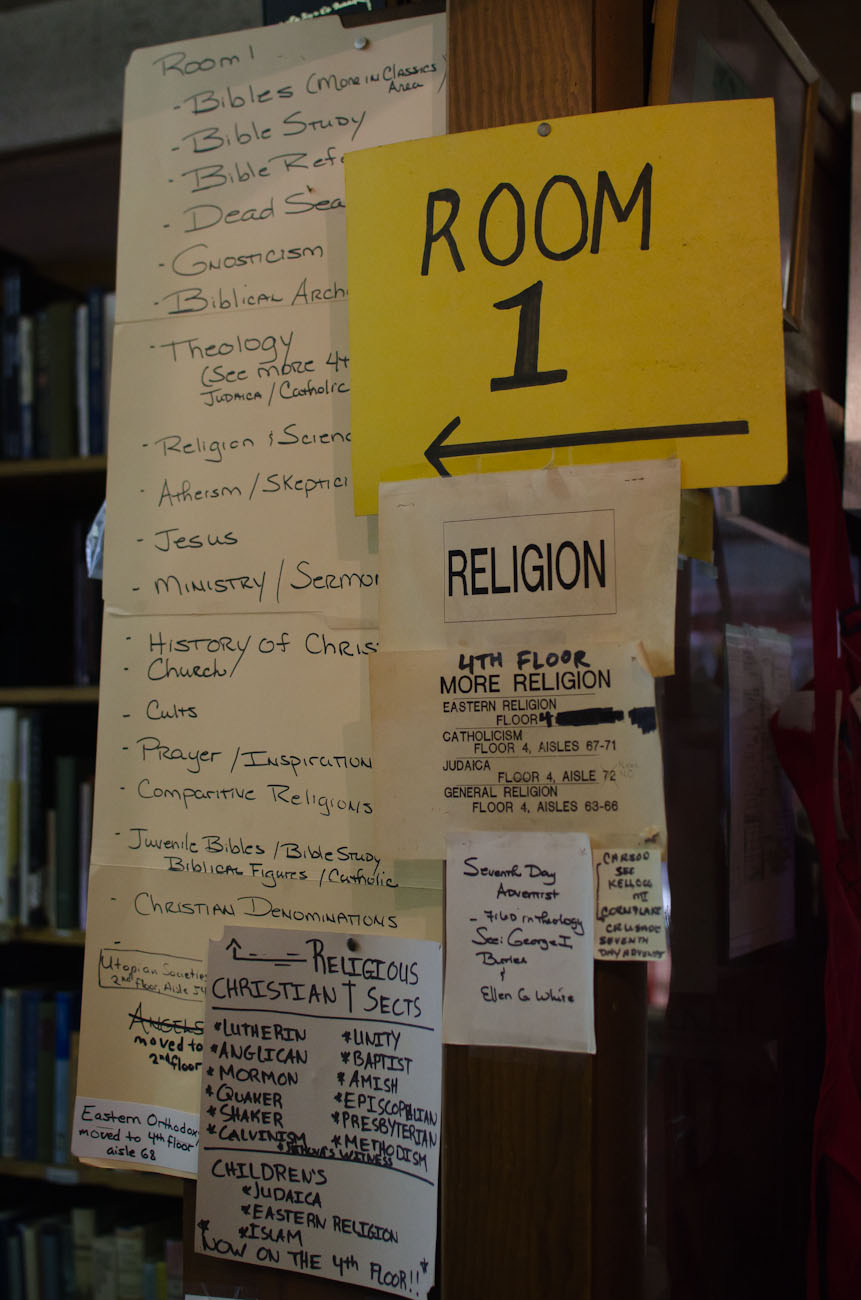 Room 1
- Bibles (More in Classics Area)
- Bible Study
- Bible Refe
- Dead Sea
- Gnosticism
- Biblical Arch
- Theology
(See more 4th
Judaica / Catholic
- Religion & Scienc
- Atheism / Skeptici
- Jesus
- Ministry / Sermon
- History of Chris
- Church/
- Cults
- Prayer / Inspiration
- Comparitive Religions
- Juvenile Bibles / Bible Study
Biblical Figures / Catholic
- Christian Denominations
-
Utopian Societies
2nd floor, Aisle 54
Angels
moved to
2nd floor
Eastern Orthodox
moved to 4th floor
aisle 68
ROOM
1
RELIGION
4TH FLOOR
MORE RELIGION
EASTERN RELIGION
FLOOR 4
CATHOLICISM
FLOOR 4, AISLES 67-71
JUDAICA
FLOOR 4, AISLE 72
GENERAL RELIGION
FLOOR 4, AISLES 63-66
Seventh Day
Adventist
- Filed in Theology
See: George I,
&
Ellen G White
SEE
KELLOGG
CORNFLAKE
CRUSADE
SEVENTH
DAY ADVENT
RELIGIOUS
CHRISTIAN † SECTS
*LUTHERIN
*ANGLICAN
*MORMON
*QUAKER
*SHAKER
*CALVINISM
*UNITY
*BAPTIST
*AMISH
*EPISCOPALIAN
*PRESBYTERIAN
*METHODISM
*JEHOVA'S WITNESS
CHILDREN'S
*JUDAICA
*EASTERN RELIGION
*ISLAM
*NOW ON THE 4th FLOOR!!*